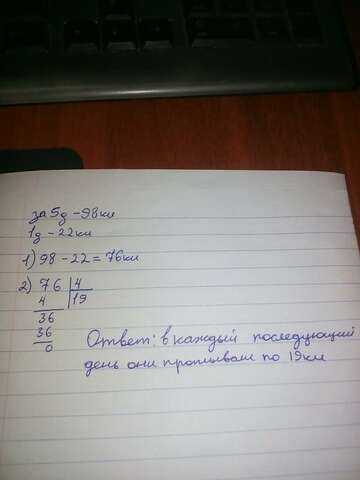 за 5д - 98км
1д - 22км
1) 98 - 22 = 76км
2) 76 | 4
4 | 19
36
36
0
Ответ: в каждый последующий
день они проплывали по 19км